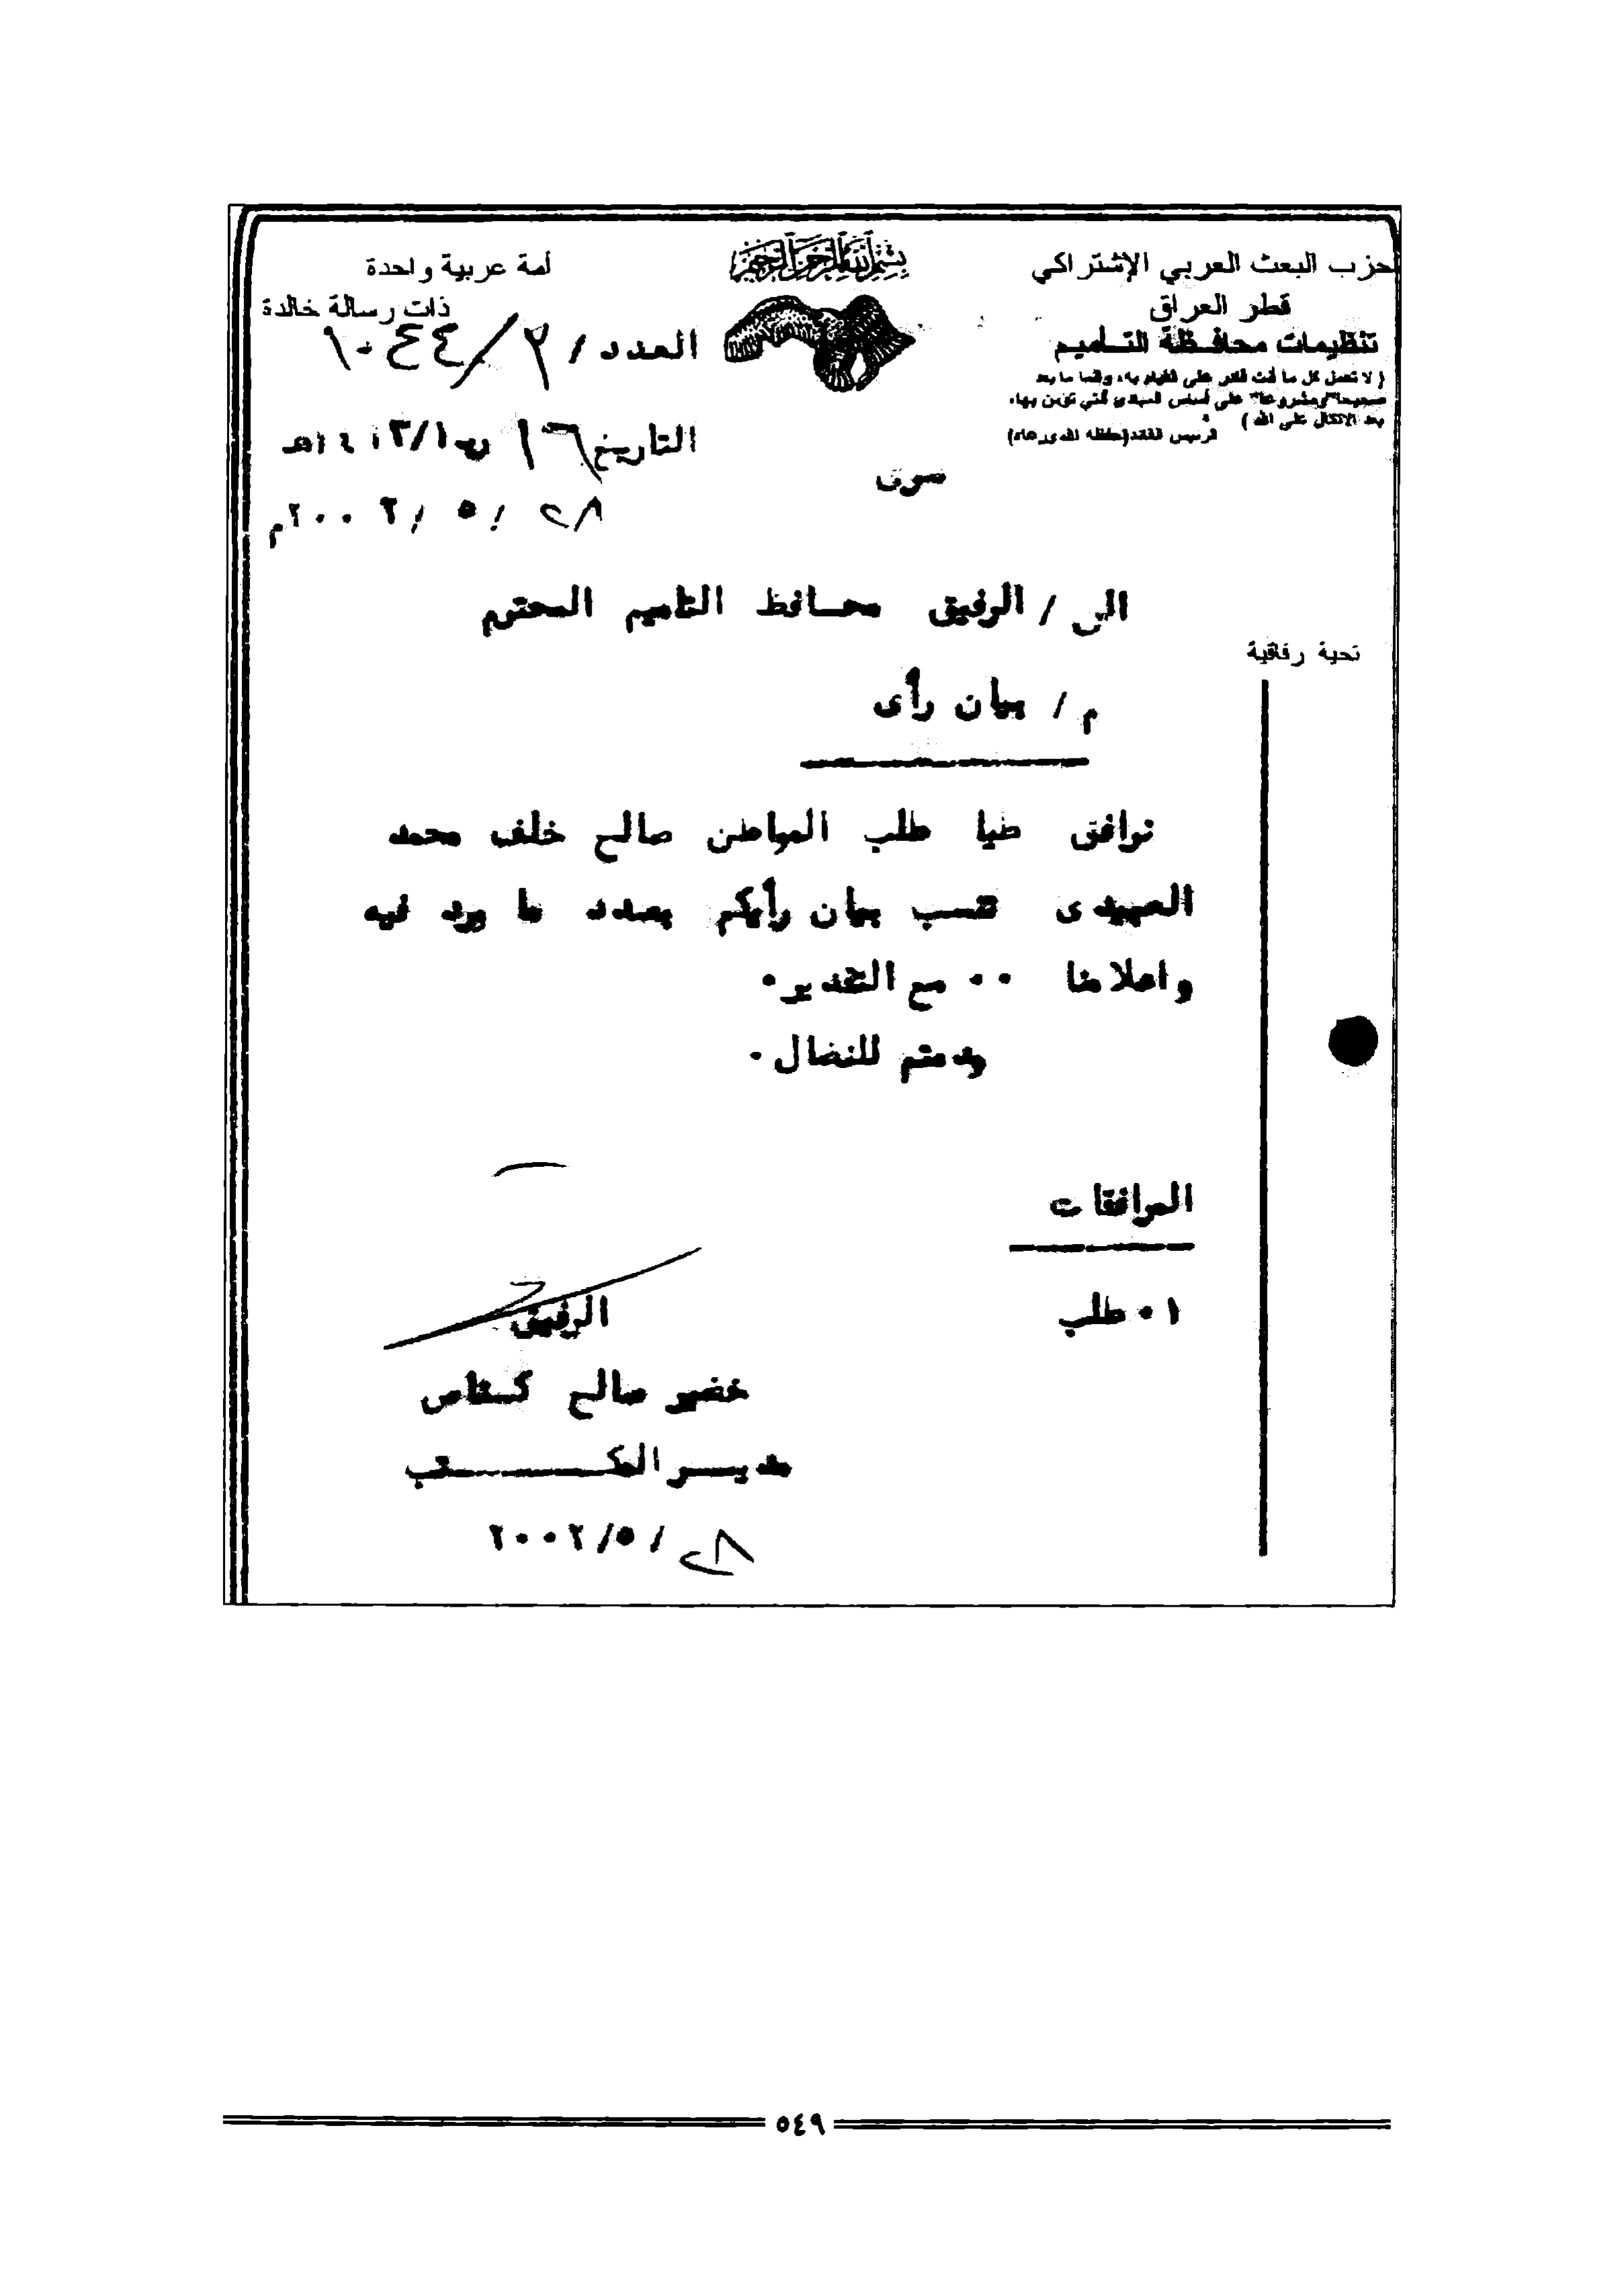 بسم الله الرحمن الرحيم
حزب البعث العربي الإشتراكي
قطر العراق
تنظيمات محافظة التأميم
( لا تعمل كل ما أنت قادر على القيام به، وإنما ما يعد
صحيحا" ومشروعا" على أساس المبادئ التي تؤمن بها،
بعد الاتكال على الله )
الرئيس القائد (حفظه الله ورعاه)
أمة عربية واحدة
ذات رسالة خالدة
العدد / ٢/
التاريخ ١٦
٢٨ / ٥ / ٢٠٠٢م
الى / الرفيق محافظ التاميم المحترم
تحية رفاقية
م / بيان رأى
نرافق طيا طلب المواطن صالح خلف محمد
العبيدى ننسب بيان رأيكم بصدد ما ورد فيه
واعلامنا ٠٠ مع التقدير٠
ودمتم للنضال ٠
المرافقات
٠١ طلب
الرفيق
خضير صالح
مدير المكتب
٢٨ / ٥/ ٢٠٠٢
٥٤٩